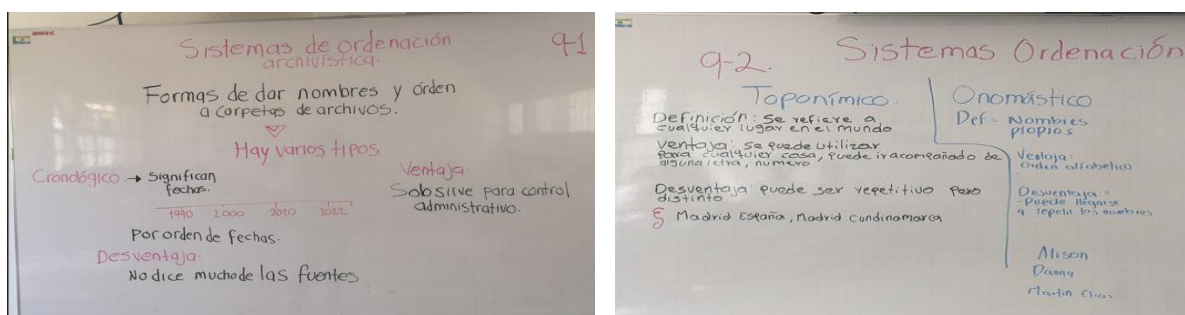 Sistemas de ordenación
archivística.
9-1
Formas de dar nombres y órden
a carpetas de archivos.
Hay varios tipos
Cronológico → Significan
fechas.
1990 2000 2010 2022
Por orden de fechas.
Desventaja.
No dice mucho de las fuentes
Ventaja.
Solo sirve para control
administrativo.
9-2. Sistemas Ordenación
Toponímico.
Definición: Se refiere a
cualquier lugar en el mundo
Ventaja: se puede utilizar
para cualquier cosa, puede ir acompañado de
alguna letra, numero
Desventaja: puede ser repetitivo pero
distinto
Madrid España, Madrid Cundinamarca
Onomástico
Def = Nombres
propios
Ventaja =
Orden alfabetico
Desventaja =
- Puede llegarse
a repetir los nombres
Alison
Danna
Martin Elias